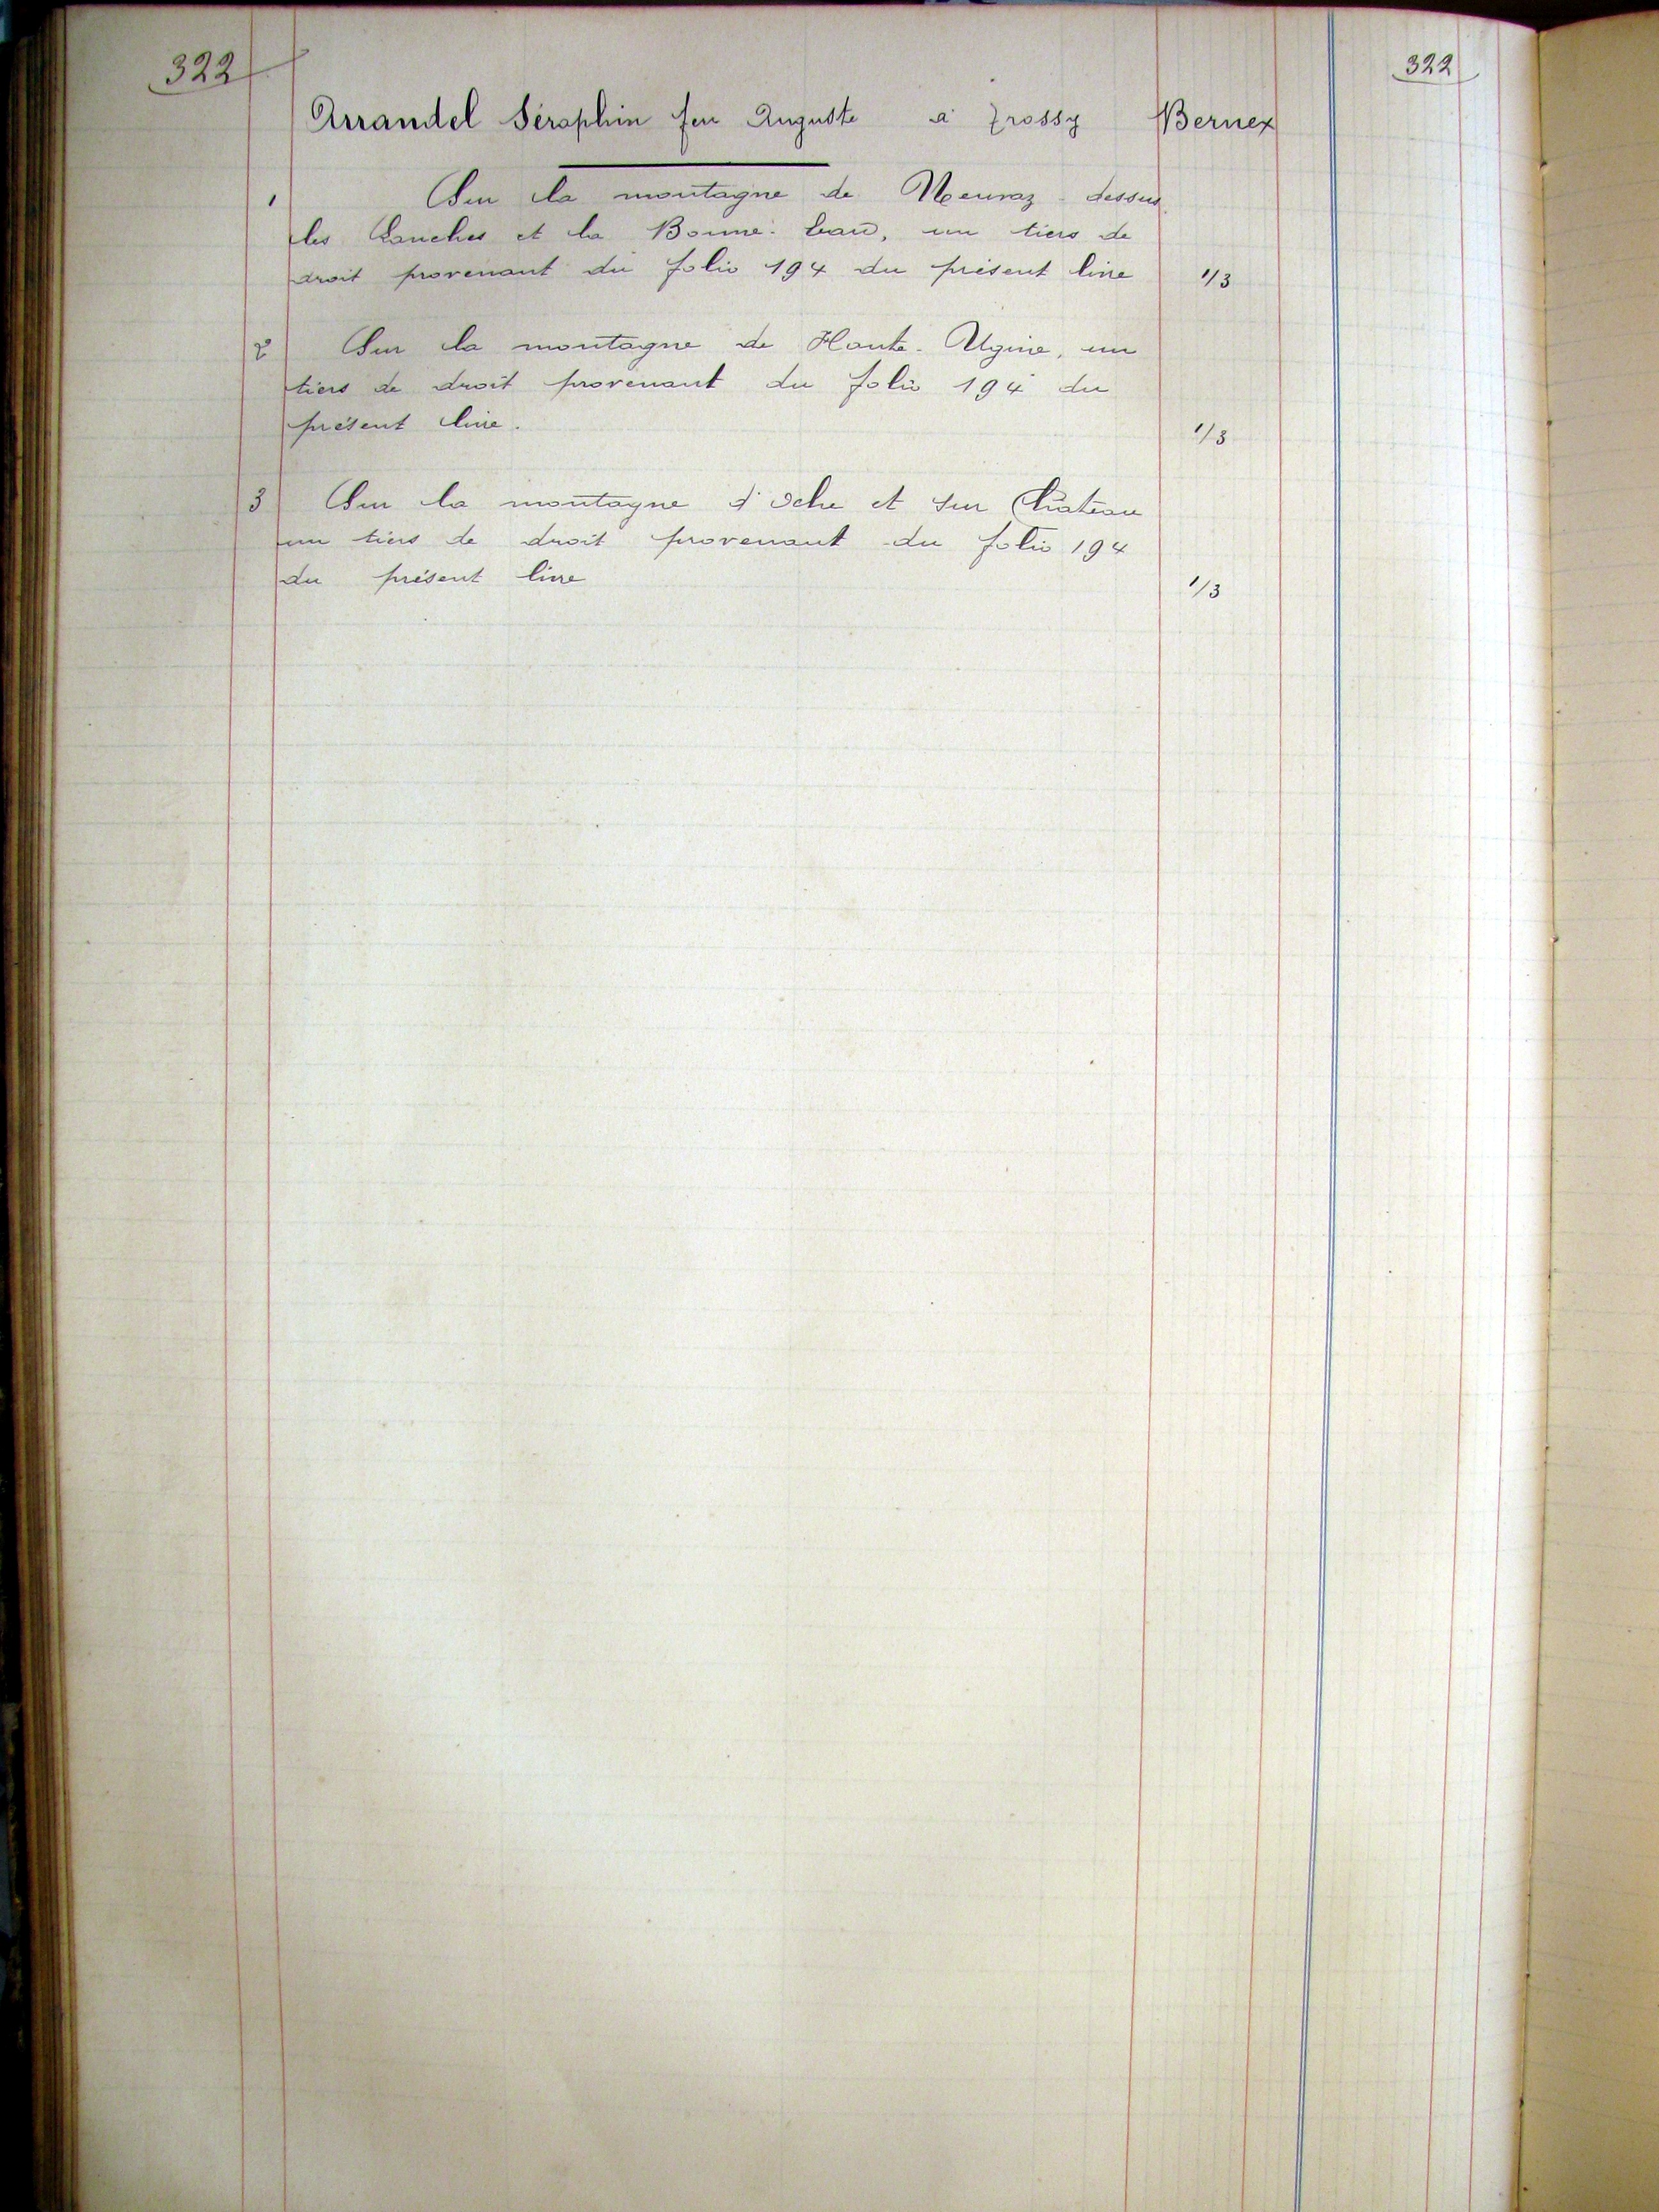 322 322
Arrandel Séraphin feu Auguste à Trossy Bernex
1 Sur la montagne de Neuvaz dessus
les Lanches et la Bonne-Eau, un tiers de
droit provenant du folio 194 du présent livre 1/3
2 Sur la montagne de Haute-Ugine, un
tiers de droit provenant du folio 194 du
présent livre. 1/3
3 Sur la montagne d'Oche et sur Château
un tiers de droit provenant du folio 194
du présent livre 1/3